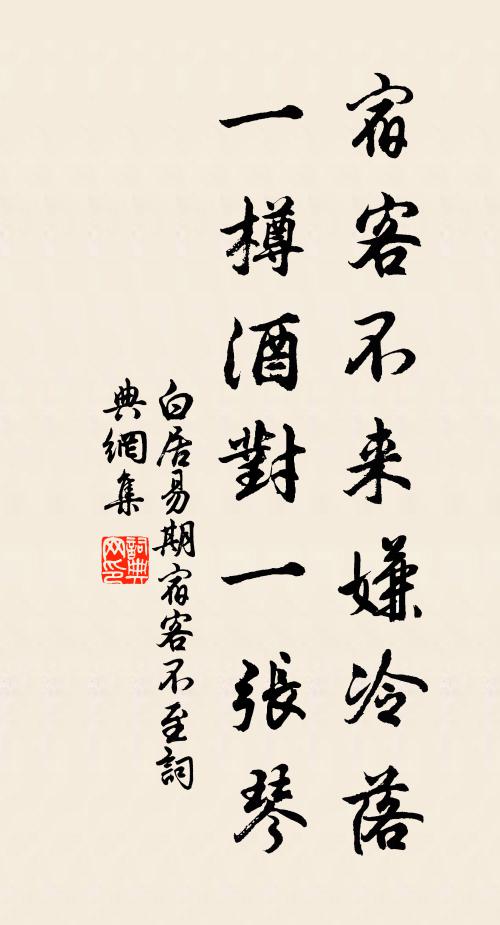 宿客不来嫌冷落
一樽酒對一張琴
白居易期宿客不至詞
典網集
詞典
网印